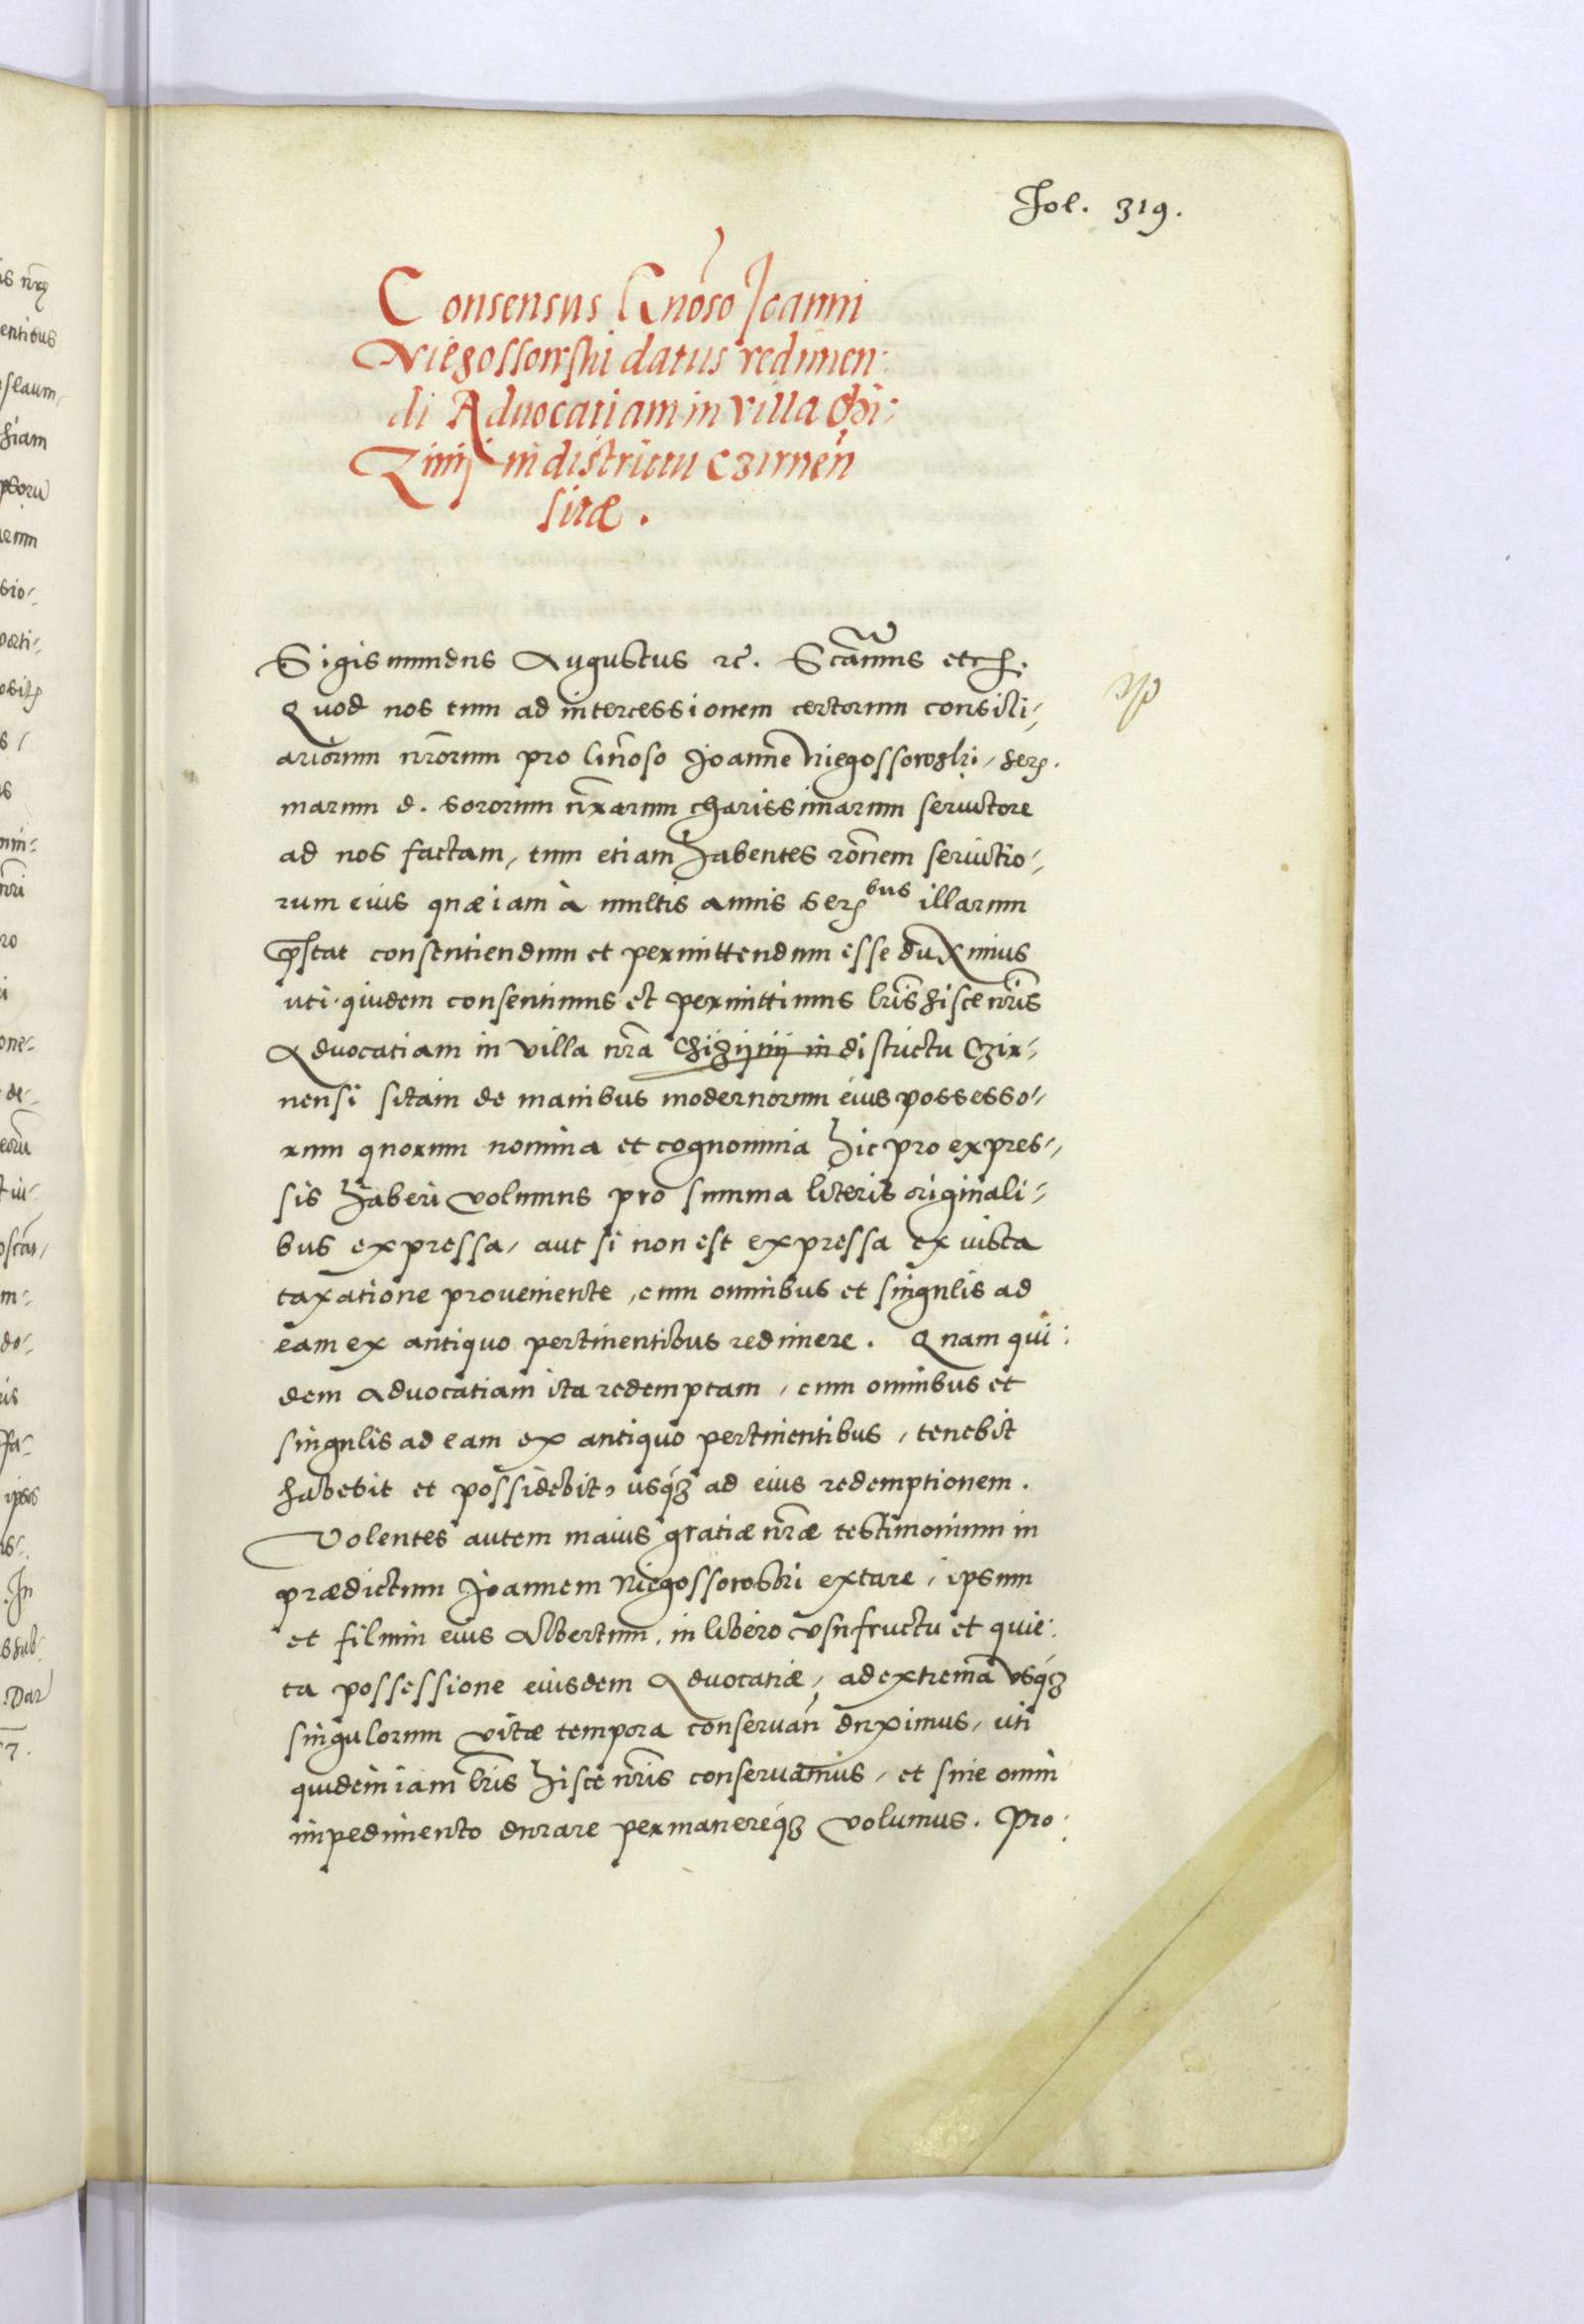 Fol. 319.
Consensus Gnoso Joanni
Niegossowski datus redimen:
di Aduocatiam in villa Chi:
Zinij in districtu Czirnen
sitæ.
Sigismundus Augustus rc. Scamus etc.
Quod nos tum ad intercessionem certorum consili-
ariorum nrorum pro Gnoso Joanne Niegossowski, ser.
marum d. sororum nrarum charissimarum seruitore
ad nos factam, tum etiam habentes ronem seruitio-
rum eius quæ iam à multis annis serbus illarum
præstat consentiendum et permittendum esse duximus
uti quidem consentimus et permittimus lris hisce nris
Aduocatiam in villa nra Chizijnij in districtu Czir-
nensi sitam de manibus modernorum eius possesso-
rum quorum nomina et cognomina hic pro expres-
sis haberi volumus pro summa literis originali-
bus expressa, aut si non est expressa ex iusta
taxatione proueniente, cum omnibus et singulis ad
eam ex antiquo pertinentibus redimere. Quam qui:
dem aduocatiam ita redemptam, cum omnibus et
singulis ad eam ex antiquo pertinentibus, tenebit
habebit et possidebit, usq3 ad eius redemptionem.
Volentes autem maius gratiæ nræ testimonium in
prædictum Joannem Niegossowski extare, ipsum
et filium eius Albertum, in libero vsufructu et quie:
ta possessione eiusdem Aduocatiæ, ad extrema vsq3
singulorum vitæ tempora conseruan duximus, uti
quidem iam lris hisce nris conseruamus, et sine omni
impedimento durare permanereq3 volumus. Pro: